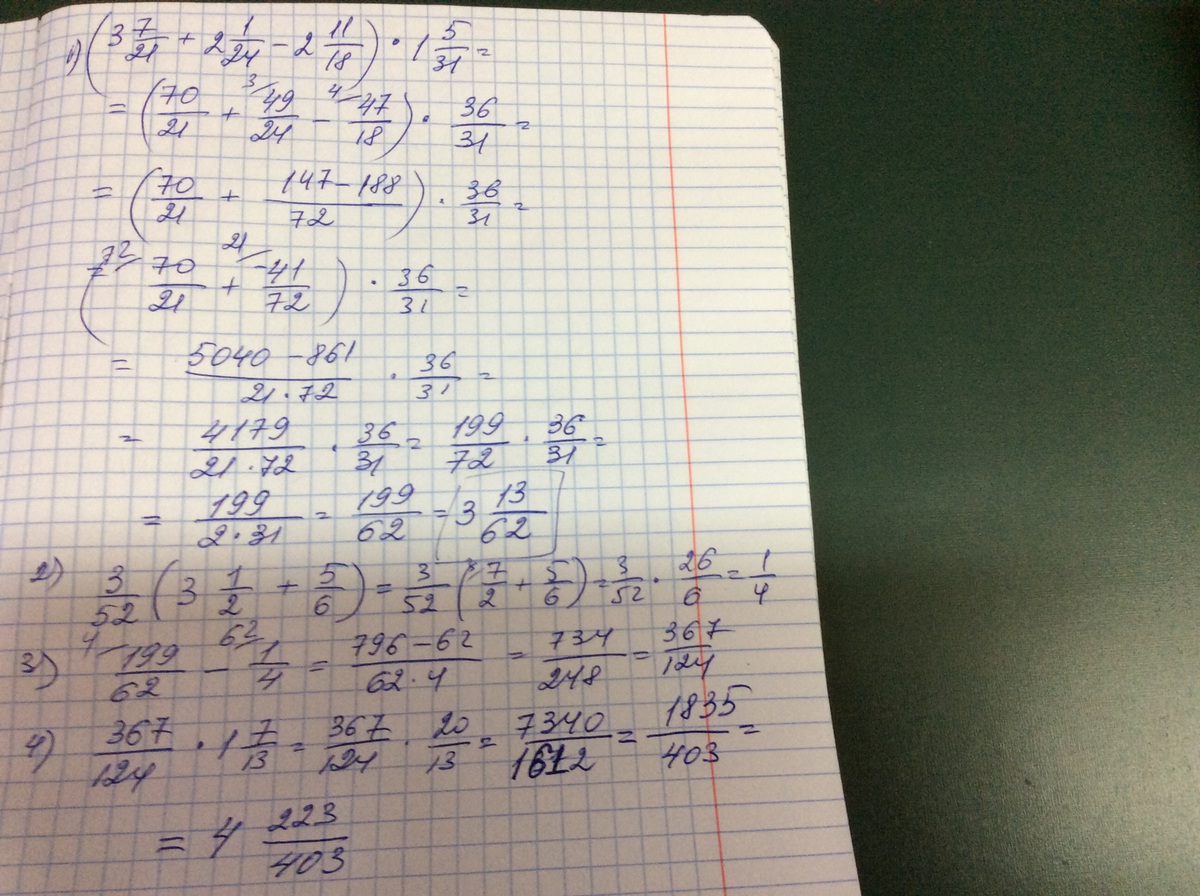 1) (3 7/21 + 2 1/24 - 2 11/18) · 1 5/31 =
= (70/21 + 3 49/24 - 4 47/18) · 36/31 =
= (70/21 + (147-188)/72) · 36/31 =
= (72 70/21 + 21 -41/72) · 36/31 =
= (5040-861)/(21·72) · 36/31 =
= 4179/(21·72) · 36/31 = 199/72 · 36/31 =
= 199/(2·31) = 199/62 = 3 13/62
2) 3/52 (3 1/2 + 5/6) = 3/52 (3 7/2 + 5/6) = 3/52 · 26/6 = 1/4
3) 4 199/62 - 62 1/4 = (796-62)/(62·4) = 734/248 = 367/124
4) 367/124 · 1 7/13 = 367/124 · 20/13 = 7340/1612 = 1835/403 =
= 4 223/403